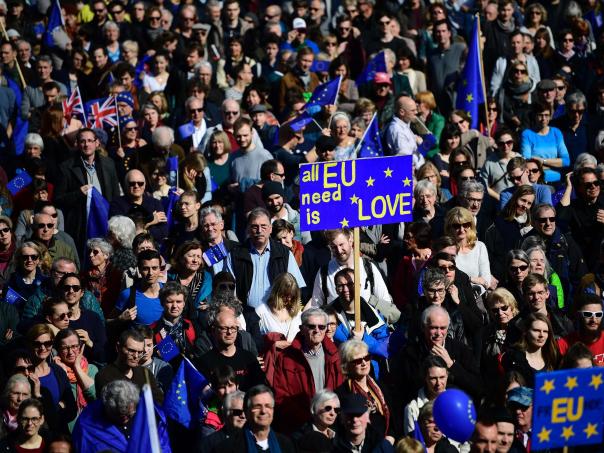 all EU
need
is LOVE
EU